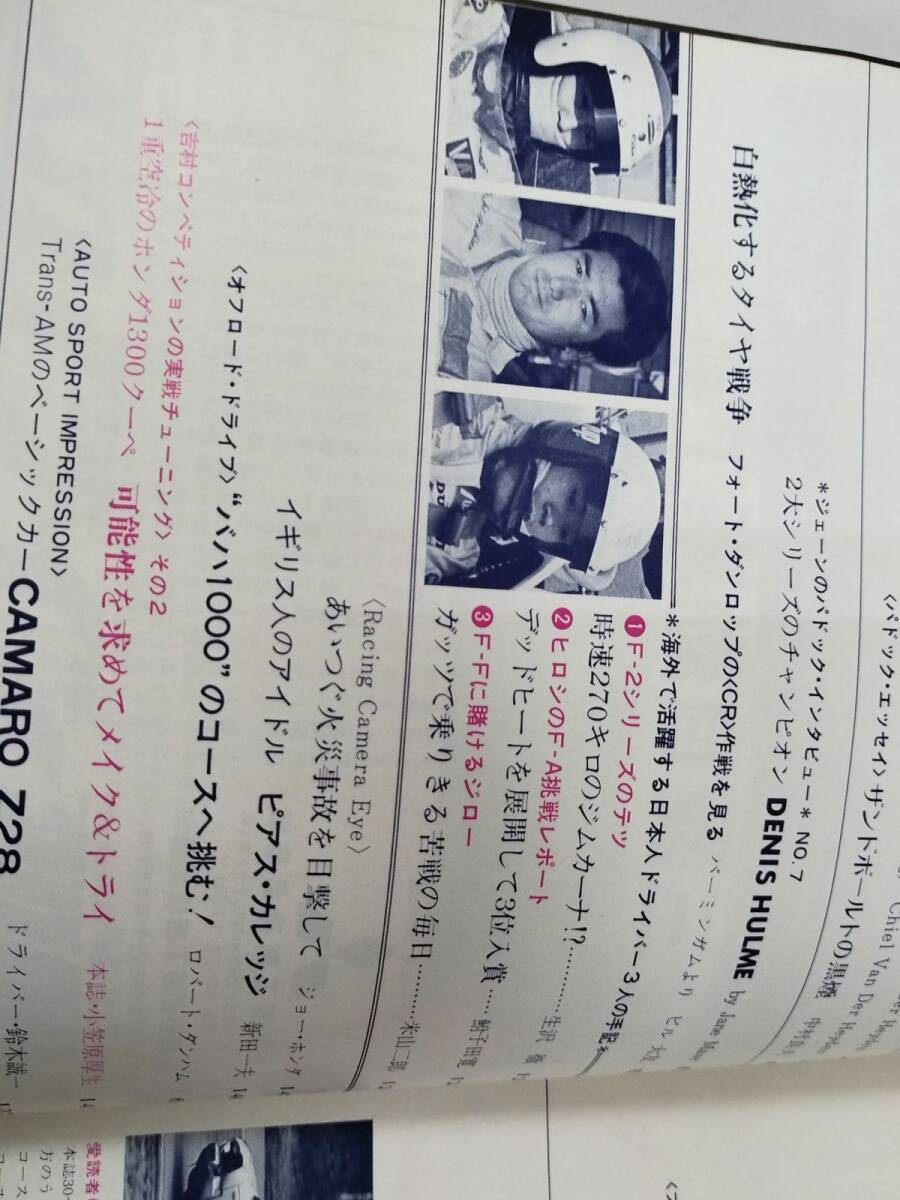 Chiel Van Der Heyden
〈パドック・エッセイ〉ザンドボールトの黒煙
*ジェーンのパドック・インタビュー* NO.7
2大シリーズのチャンピオン DENIS HULME by Jane
白熱化するタイヤ戦争 フォート・ダンロップの〈CR〉作戦を見る バーミンガムより ビル
*海外で活躍する日本人ドライバー3人の手記*
❶F-2シリーズのテツ
時速270キロのジムカーナ!?………生沢 徹
❷ヒロシのF-A挑戦レポート
デッドヒートを展開して3位入賞…鮒子田寛
❸F-Fに賭けるジロー
ガッツで乗りきる苦戦の毎日………米山二郎
〈Racing Camera Eye〉
あいつぐ火災事故を目撃して ジョー・ホンダ 14
イギリス人のアイドル ピアス・カレッジ 新田一夫 14
〈オフロード・ドライブ〉“バハ1000”のコースへ挑む! ロバート・ダンハム 6
〈吉村コンペティションの実戦チューニング〉その2
1重空冷のホンダ1300クーペ 可能性を求めてメイク&トライ 本誌・小笠原厚生 14
〈AUTO SPORT IMPRESSION〉
Trans-AMのベーシックカーCAMARO Z28 ドライバー・鈴木誠一
愛読者
本誌30
方のう
コース